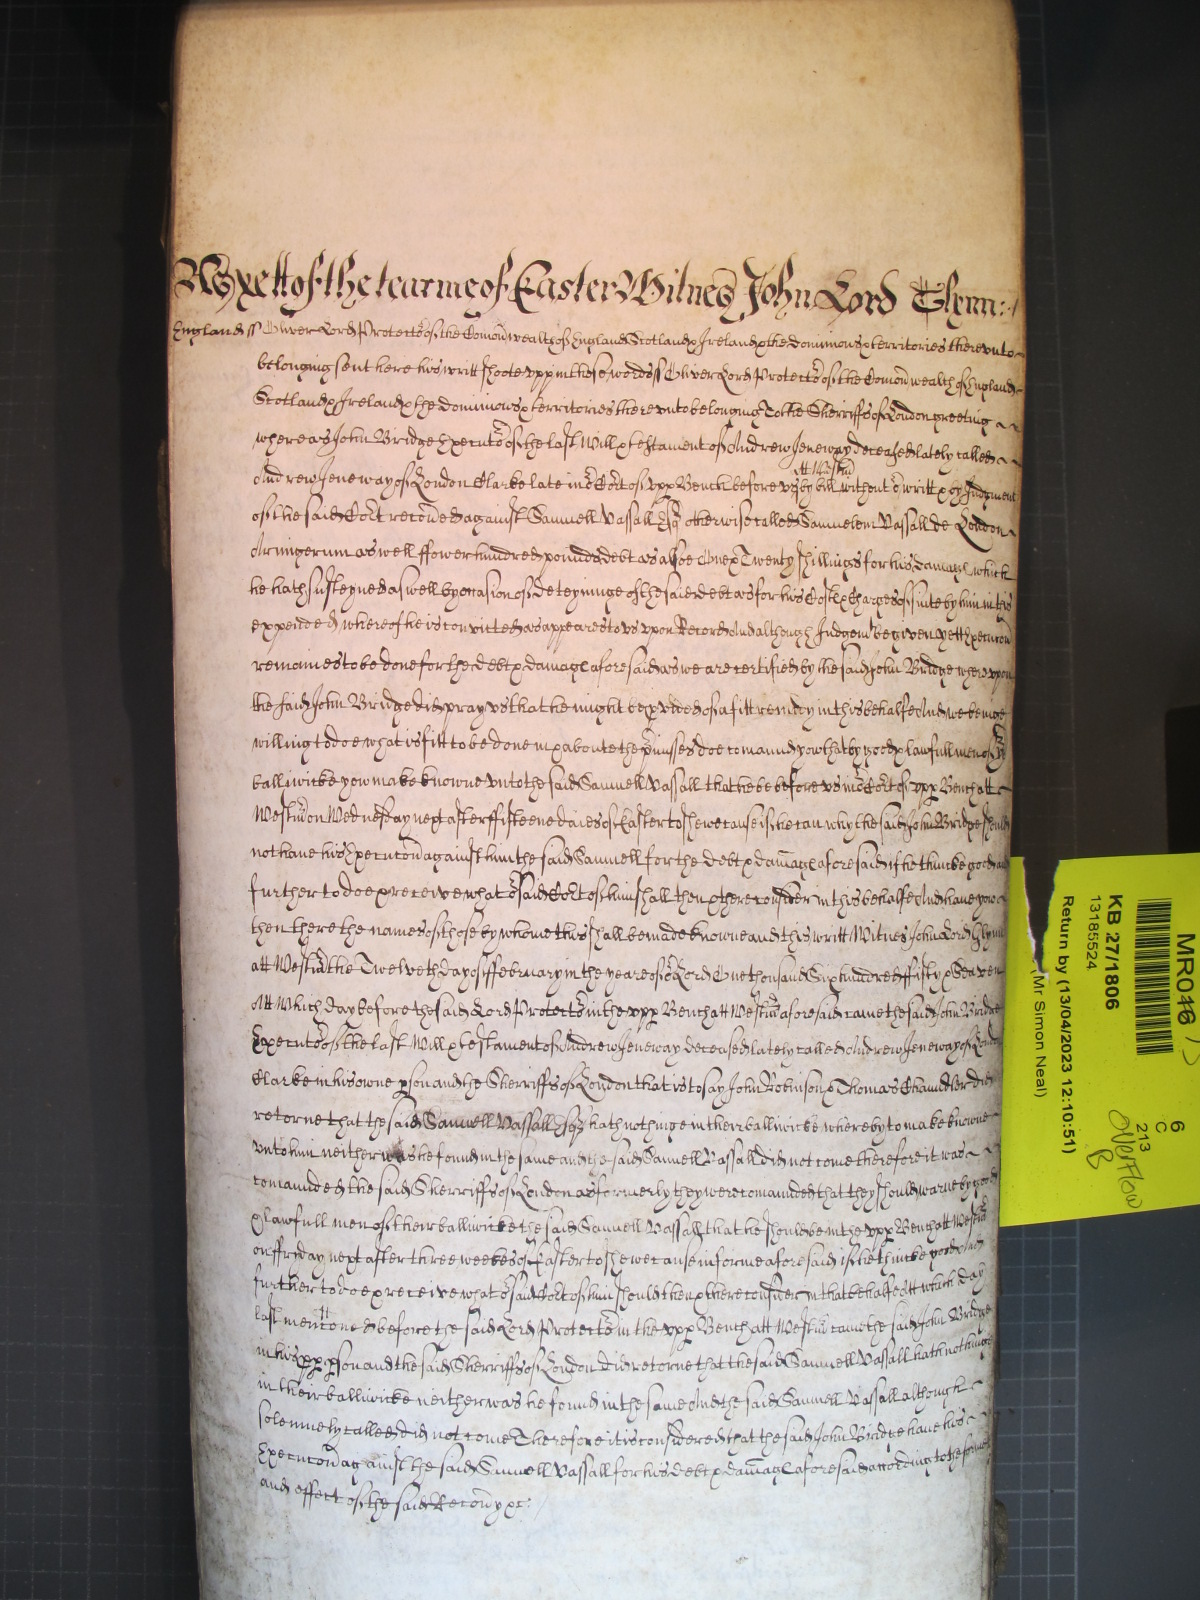 As yett of the tearme of Easter Witnes John Lord Glynn:
England ss Oliver Lord Protector of the Comonwealth of England Scotland & Ireland & the dominions & territories thereunto
belonging sent here his writt shoote upp in these words ss Oliver Lord Protector of the Comonwealth of England
Scotland & Ireland & the dominions & territories thereunto belonging To the Sherriffs of London greeting
whereas John Bridge Executor of the last Will & testament of Andrew Jeneway deceased lately called
Andrew Jeneway of London Clarke late in our Court of upper Bench before us att Westm by bill without our writt & by Judgment
of the said Court recovered against Samuell Vassall Esqr otherwise called Samuelem Vassall de London
Armigerum as well ffower hundred pounds debt as alsoe One & Twenty shillings for his damage which
he hath susteyned as well by occasion of deteyninge of the said debt as for his Costs & Charges of suite by him in this
expended whereof he is convicted as appeares to us upon Record And although Judgemt be given yett Execucon
remaines to be done for the debt & damage aforesaid as we are certified by the said John Bridge whereupon
the said John Bridge did pray us that he might be pvided of a fitt remidy in this behalfe And we beinge
willing to doe what is fitt to be done in & aboute the pmisses doe comaund yow that by good & lawfull men of yor
balliwicke yow make knowne unto the said Samuell Vassall that he be before us in our Court of upp Bench att
Westm on Wednesday next after ffifteene daies of Easter to shewe cause if he can why the said John Bridge should
not have his Execucon against him the said Samuell for the debt & damage aforesaid if he thincke good and
further to doe & receive what our said Court of him shall then & there consider in this behalfe And have yow
then there the names of those by whome this shall be made knowne and this writt Witnes John Lord Glynn
att Westm the Twelveth day of ffebruary in the yeare of our Lord One thousand Six hundred ffifty & Seaven
Att Which day before the said Lord Protector in the upp Bench att Westm aforesaid came the said John Bridge
Executor of the last Will & testament of Andrew Jeneway deceased lately called Andrew Jeneway of London
Clarke in his owne pson and the Sherriffs of London that is to say John Robinson & Thomas Chaundler did
retorne that the said Samuell Vassall Esqr hath nothinge in their balliwicke whereby to make knowne
unto him neither was he found in the same and the said Samuell Vassall did not come therefore it was
comaunded the said Sherriffs of London as formerly they were comaunded that they should warne by good
& lawfull men of their balliwicke the said Samuell Vassall that he should be in the upp Bench att Westm
on ffriday next after three weekes of Easter to shewe cause in forme aforesaid if he thincke good And
further to doe & receive what our said Court of him should then & there consider in that behalfe Att which day
last mentioned before the said Lord Protector in the upp Bench att Westm came the said John Bridge
in his pp pson and the said Sherriffs of London did retorne that the said Samuell Vassall hath nothinge
in their balliwicke neither was he found in the same And the said Samuell Vassall although
solemnely called did not come Therefore it is considered that the said John Bridge have his
Execucon against the said Samuell Vassall for his debt & damage aforesaid according to the forme
and effect of the said Recovery &c:
MR046
6
C
213
Overflow
B
KB 27/1806
13185524
Return by (13/04/2023 12:10:51)
(Mr Simon Neal)